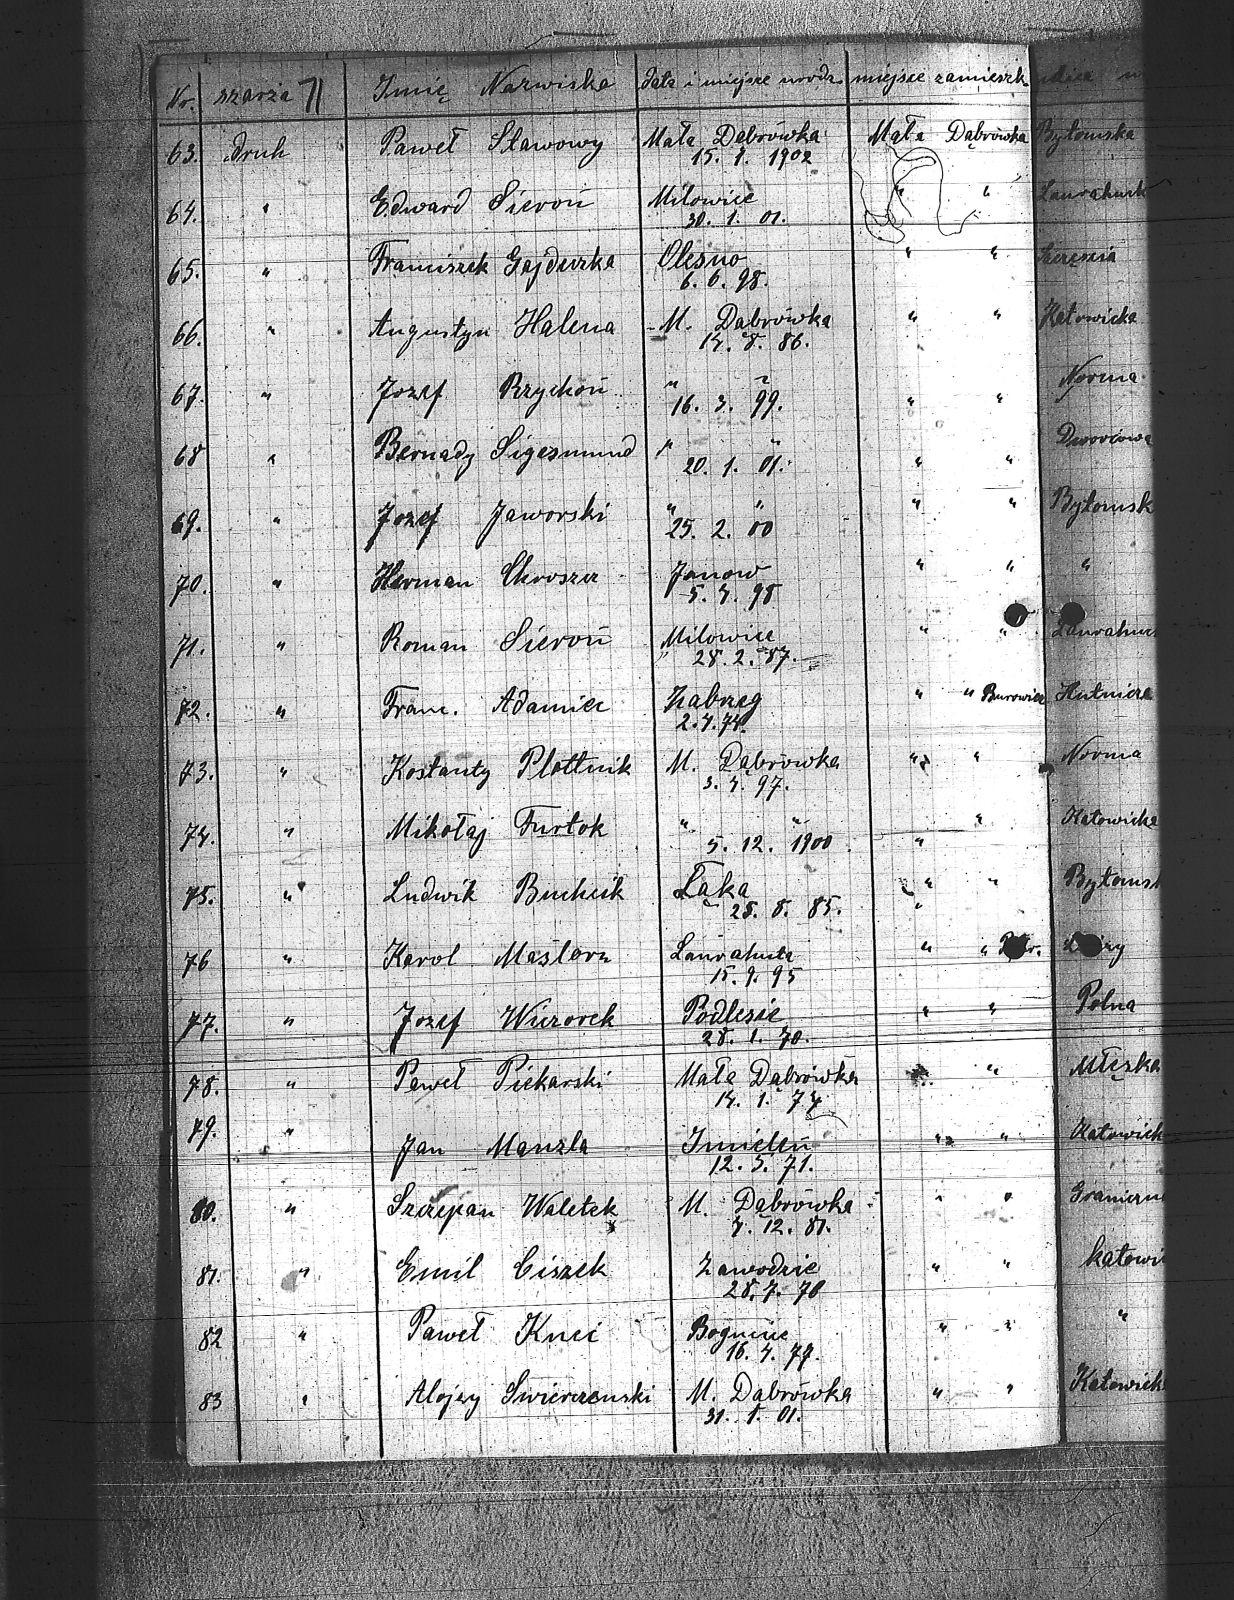 Nr. szarża 71 Imię Nazwiska data i miejsce urodz. miejsce zamieszk.
63. druh Paweł Sławowy Mała Dąbrówka Mała Dąbrówka Bytomska
15. 1. 1902
64. " Edward Sieroń Milowice " " Laurahuck
30. 1. 01.
65. " Franciszek Gajduzka Olesno " "
6. 6. 98.
66. " Augustyn Halena M. Dąbrówka " " Katowicka
14. 8. 86.
67. " Jozef Rzychoń " " " " Norma
16. 3. 99.
68 " Bernady Sigesmund " " " " Dworcowa
20. 1. 01.
69. " Jozef Jaworski " " " " Bytomsk
25. 2. 00
70. " Herman Chroszcz Janow " " "
5. 4. 98
71. " Roman Sieroń Milowice " " Laurahuc
28. 2. 87.
72. " Franc. Adamiec Zabrzeg " " Burowiec Hutnicza
2. 4. 74.
73. " Kostanty Plottnik M. Dąbrówka " " Norma
3. 4. 97.
74. " Mikołaj Furtok " " " " Katowicka
5. 12. 1900
75. " Ludwik Buchcik Łąka " " Bytomsk
28. 8. 85.
76 " Karol Maslorz Laurahuta " "
15. 9. 95
77. " Jozef Wieczorek Podlesie " " Polna
28. 1. 70.
78. " Paweł Piekarski Mała Dąbrówka " "
14. 1. 74
79. " Jan Manzla Imielin " " Katowick
12. 5. 71.
80. " Szczepan Waletek M. Dąbrówka " " Graniczna
4. 12. 81.
81. " Emil Ciszek Zawodzie " " Katowi
28. 7. 78
82 " Paweł Knei " " "
16. 4. 77.
83 " Alojzy Swierczenski M. Dąbrówka " " Katowick
31. 1. 01.